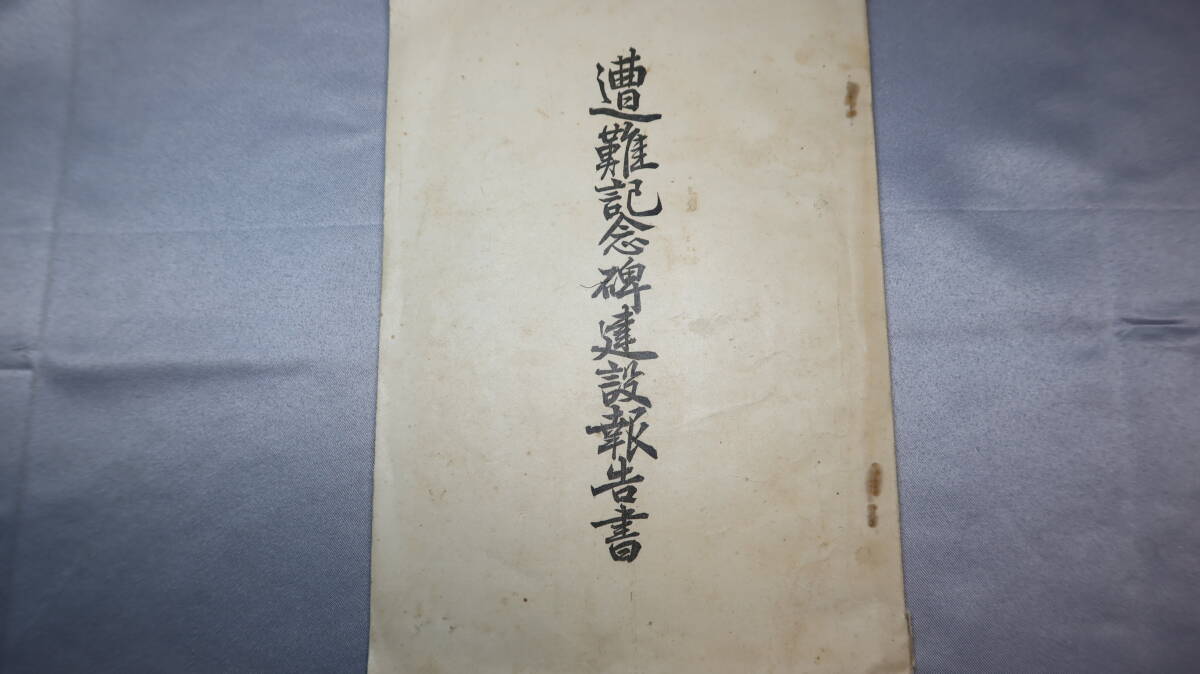 遭難記念碑建設報告書